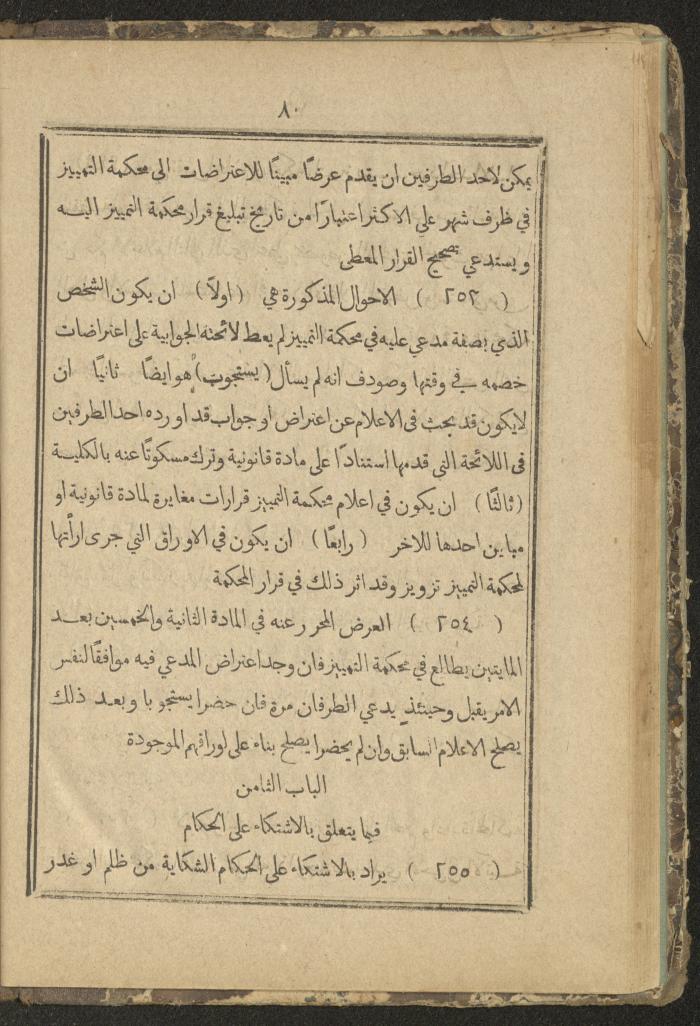 ٨٠
يمكن لاحد الطرفين ان يقدم عرضًا مبينًا للاعتراضات الى محكمة التمييز
في ظرف شهر على الاكثر اعتبارًا من تاريخ تبليغ قرار محكمة التمييز اليه
ويستدعي تصحيح القرار المعطى
( ٢٥٣ ) الاحوال المذكورة هي (اولاً) ان يكون الشخص
الذي بصفة مدعي عليه في محكمة التمييز لم يعط لائحته الجوابية على اعتراضات
خصمه في وقتها وصودف انه لم يسأل (يستجوب) هو ايضًا ثانيًا ان
لايكون قد بحث في الاعلام عن اعتراض او جواب قد اورده احد الطرفين
في اللائحة التي قدمها استنادًا على مادة قانونية وترك مسكوتًا عنه بالكلية
(ثالثًا) ان يكون في اعلام محكمة التمييز قرارات مغايرة لمادة قانونية او
مباين احدها للاخر (رابعًا) ان يكون في الاوراق التي جرى ارأتها
لمحكمة التمييز تزويز وقد اثر ذلك في قرار المحكمة
( ٢٥٤ ) العرض المحرر عنه في المادة الثانية والخمسين بعد
المايتين يطالع في محكمة التمييز فان وجد اعتراض المدعي فيه موافقًا لنفس
الامر يقبل وحينئذٍ يدعي الطرفان مرة فان حضرا يستجوبا وبعد ذلك
يصلح الاعلام السابق وان لم يحضرا يصلح بناء على اوراقهم الموجودة
الباب الثامن
فيما يتعلق بالاشتكاء على الحكام
( ٢٥٥ ) يراد بالاشتكاء على الحكام الشكاية من ظلم او غدر